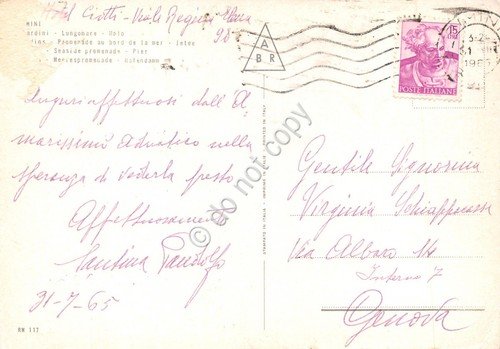 Hotel Ciotti - Viale Regina Elena
98
MINI
ardini - Lungomare - Molo
Promenade au bord de la mer - Jetée
Seaside promenade - Pier
Meerespromenade - Hafendamm
A
BR
15
POSTE ITALIANE
1965
Auguri affettuosi dall'A
marissimo Adriatico nella
speranza di vederla presto
Affettuosamente
Santina Pandolfo
31-7-65
Gentile Signorina
Virginia Schiappacasse
Via Albaro 14
Interno 7
Genova
RN 117
do not copy